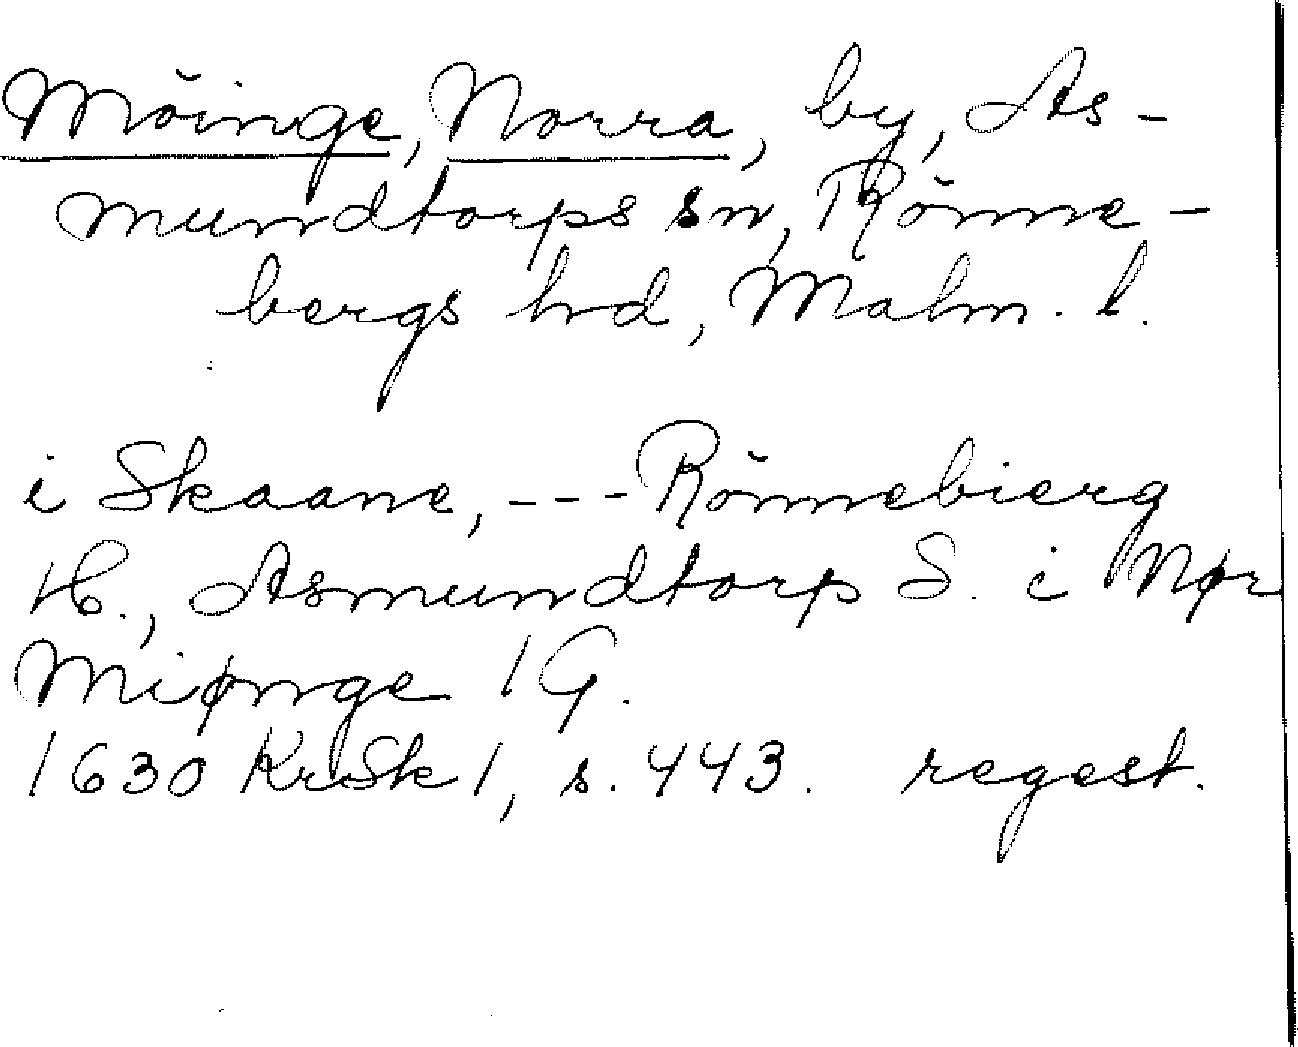 Möinge, Norra, by, As-
mundtorps sn, Rönne-
bergs hrd, Malm. l.
i Skaane, --- Rönnebierg
H., Asmundtorp S. i Nør
Miønge 1 G.
1630 KrSk 1, s. 443. regest.